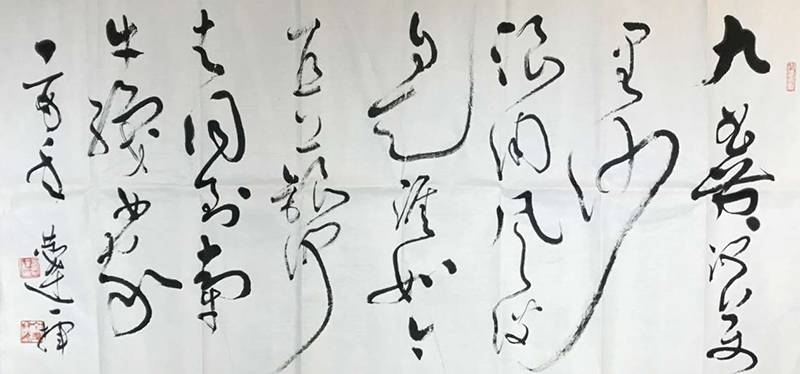 九曲黄河万
里沙
浪淘风簸
自天涯如今
直上银河
去同到牵
牛织女家